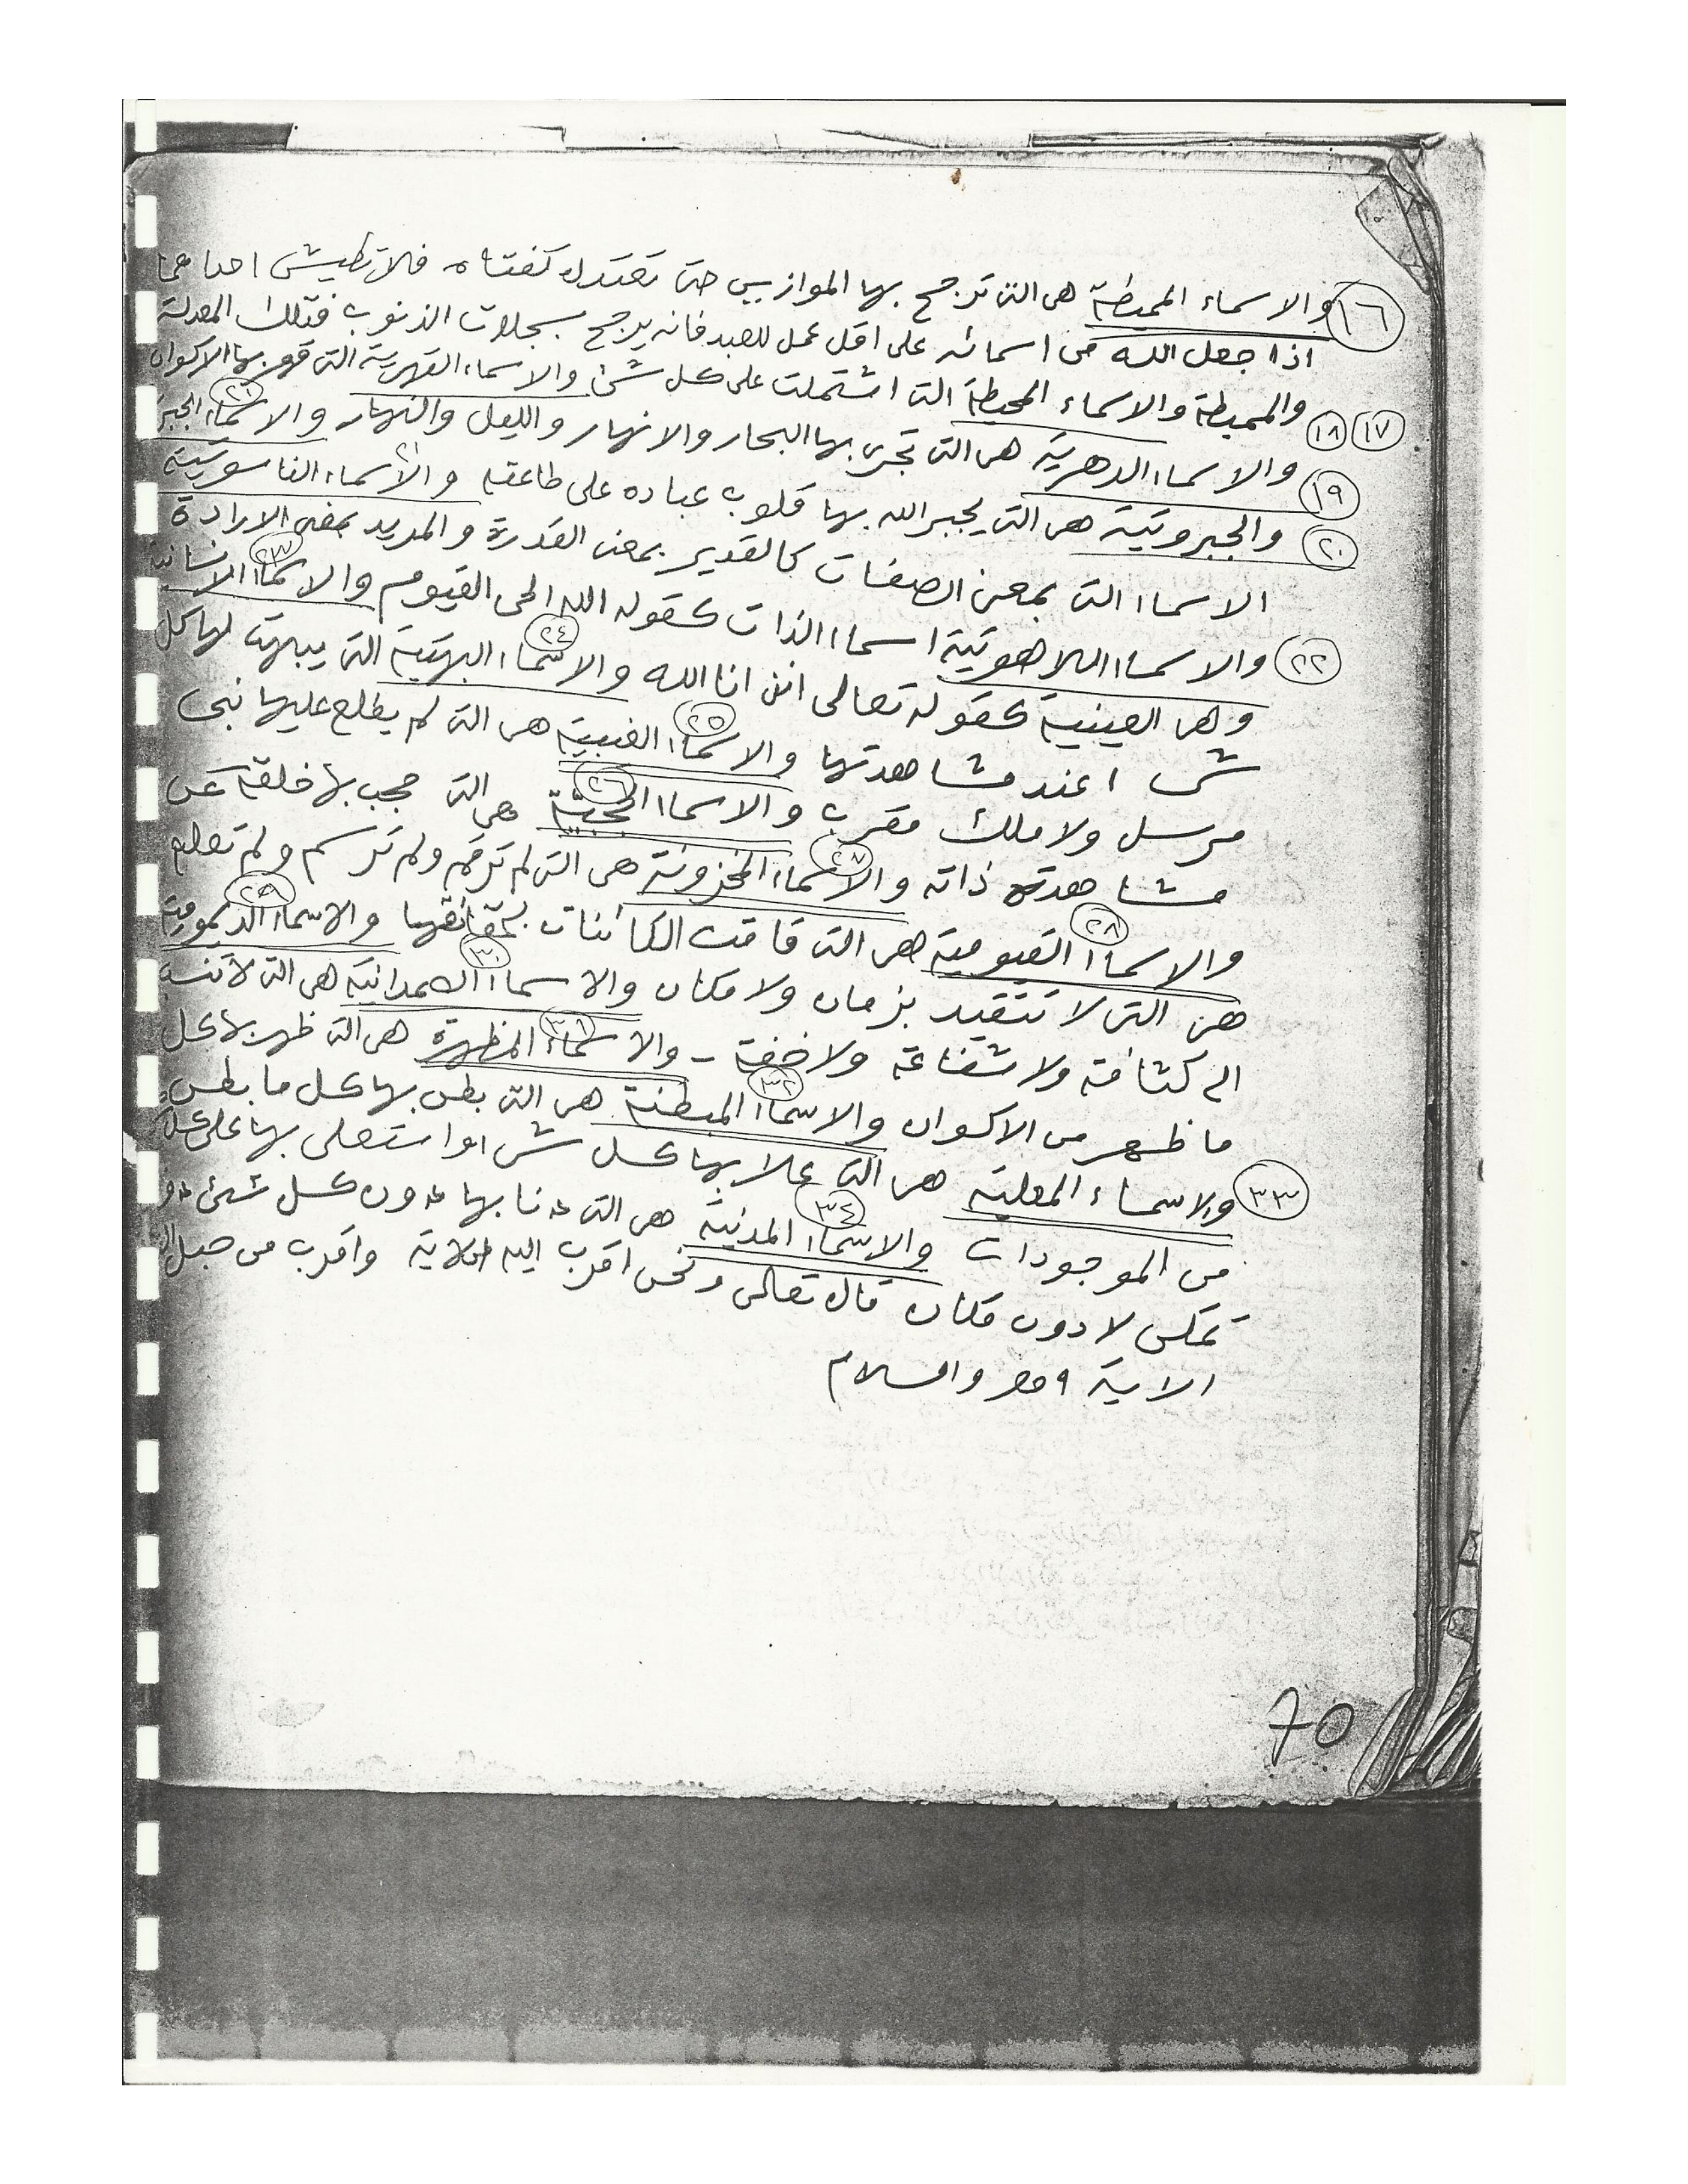 ١٦ والاسماء المميطة هى التى ترجح بها الموازين حتى تعتدل كفتاه فلا تطيش احداهما
اذا جعل الله من اسمائه على اقل عمل للعبد فانه يرجح بسجلات الذنوب فتلك المعدلة
١٧ ١٨ والمميطة والاسماء المحيطة التى اشتملت على كل شئ والاسماء القهرية التى قهر بها الاكوان
١٩ والاسماء الدهرية هى التى تجرى بها البحار والانهار والليل والنهار والاسماء الجبر
٢٠ والجبروتية هى التى يجبر الله بها قلوب عباده على طاعته ٢١ والاسماء الناسوتية
الاسماء التى بمعنى الصفات كالقدير بمعنى القدرة والمريد بمعنى الارادة
٢٢ والاسماء اللاهوتية اسماء الذات كقوله الله الحى القيوم ٢٣ والاسماء الانسانية
وهى العينية كقوله تعالى اننى انا الله ٢٤ والاسماء البهتية التى يبهت لها كل
شئ عند مشاهدتها ٢٥ والاسماء الغيبية هى التى لم يطلع عليها نبى
مرسل ولا ملك مقرب ٢٦ والاسماء الحجبية هى التى حجب بها خلقه عن
مشاهدة ذاته ٢٧ والاسماء المخزونة هى التى لم ترقم ولم ترسم ولم تعلم
٢٨ والاسماء القيومية هى التى قامت الكائنات بحقائقها ٢٩ والاسماء الديمومية
هى التى لا تتقيد بزمان ولا مكان ٣٠ والاسماء الصمدانية هى التى لا تنسب
الى كثافة ولا شفاعة ولا خفة - ٣١ والاسماء المظهرة هى التى ظهر بها كل
ما ظهر من الاكوان ٣٢ والاسماء المبطنة هى التى بطن بها كل ما بطن
٣٣ والاسماء المعلية هى التى علا بها كل شئ او استعلى بها على
من الموجودات ٣٤ والاسماء المدنية هى التى دنا بها دون كل شئ
تمكن لا دون مكان قال تعالى ونحن اقرب اليه الاية واقرب من حبل
الاية والسلام
70